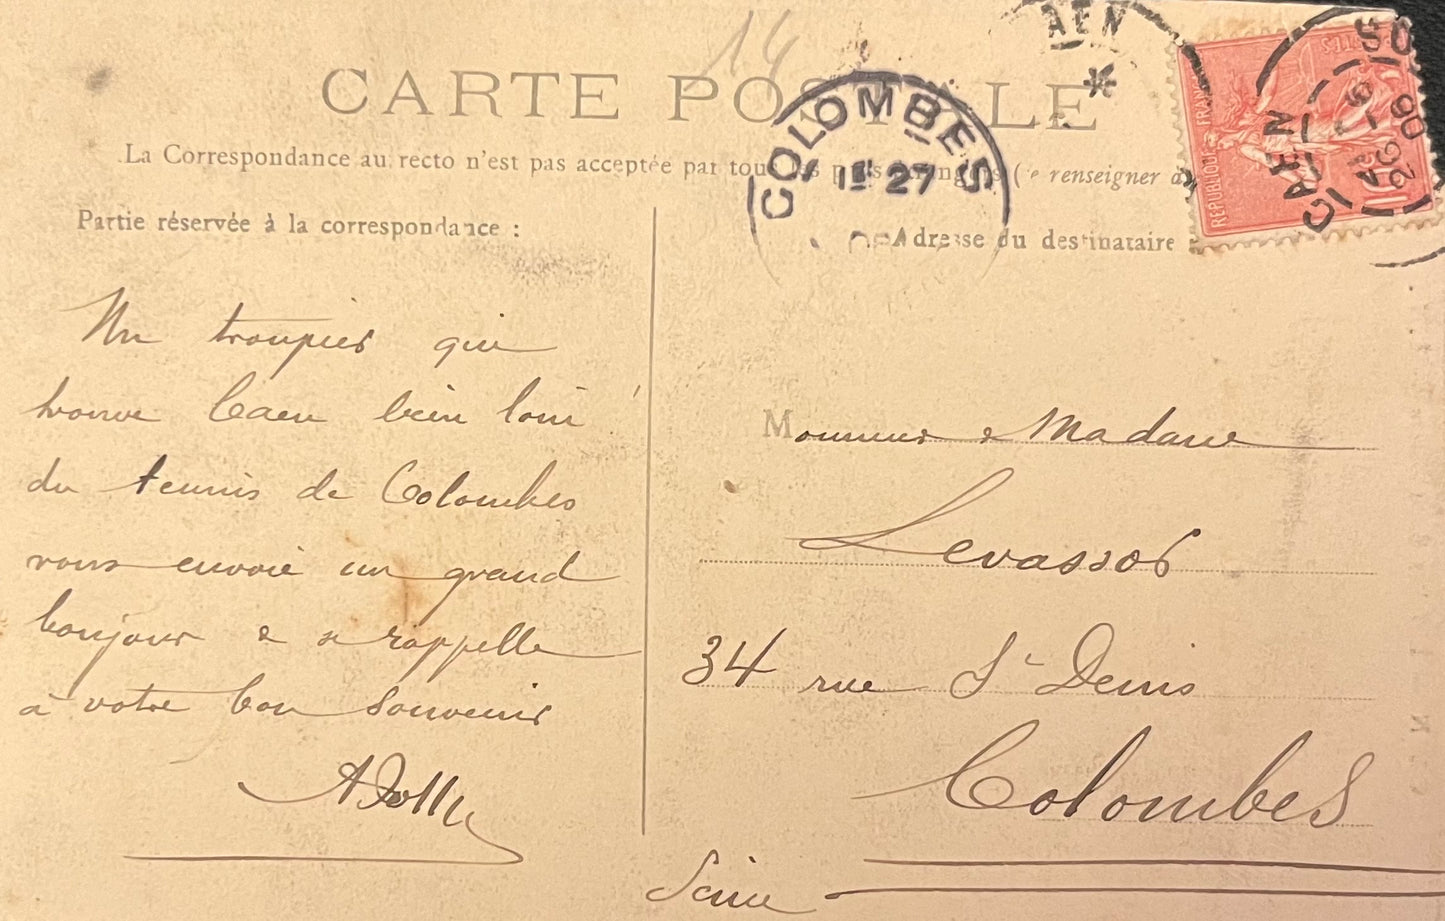 14
CARTE POSTALE
La Correspondance au recto n'est pas acceptée par tous les pays étrangers (Se renseigner à
Partie réservée à la correspondance :
Adresse du destinataire
COLOMBES
1E 27
CAEN
CAEN
26 -6
REPUBLIQUE FRANÇ
Un troupier qui
trouve Caen bien loin
du tennis de Colombes
vous envoie un grand
bonjour & se rappelle
à votre bon souvenir
Monsieur & Madame
Levassor
34 rue St Denis
Colombes
Seine